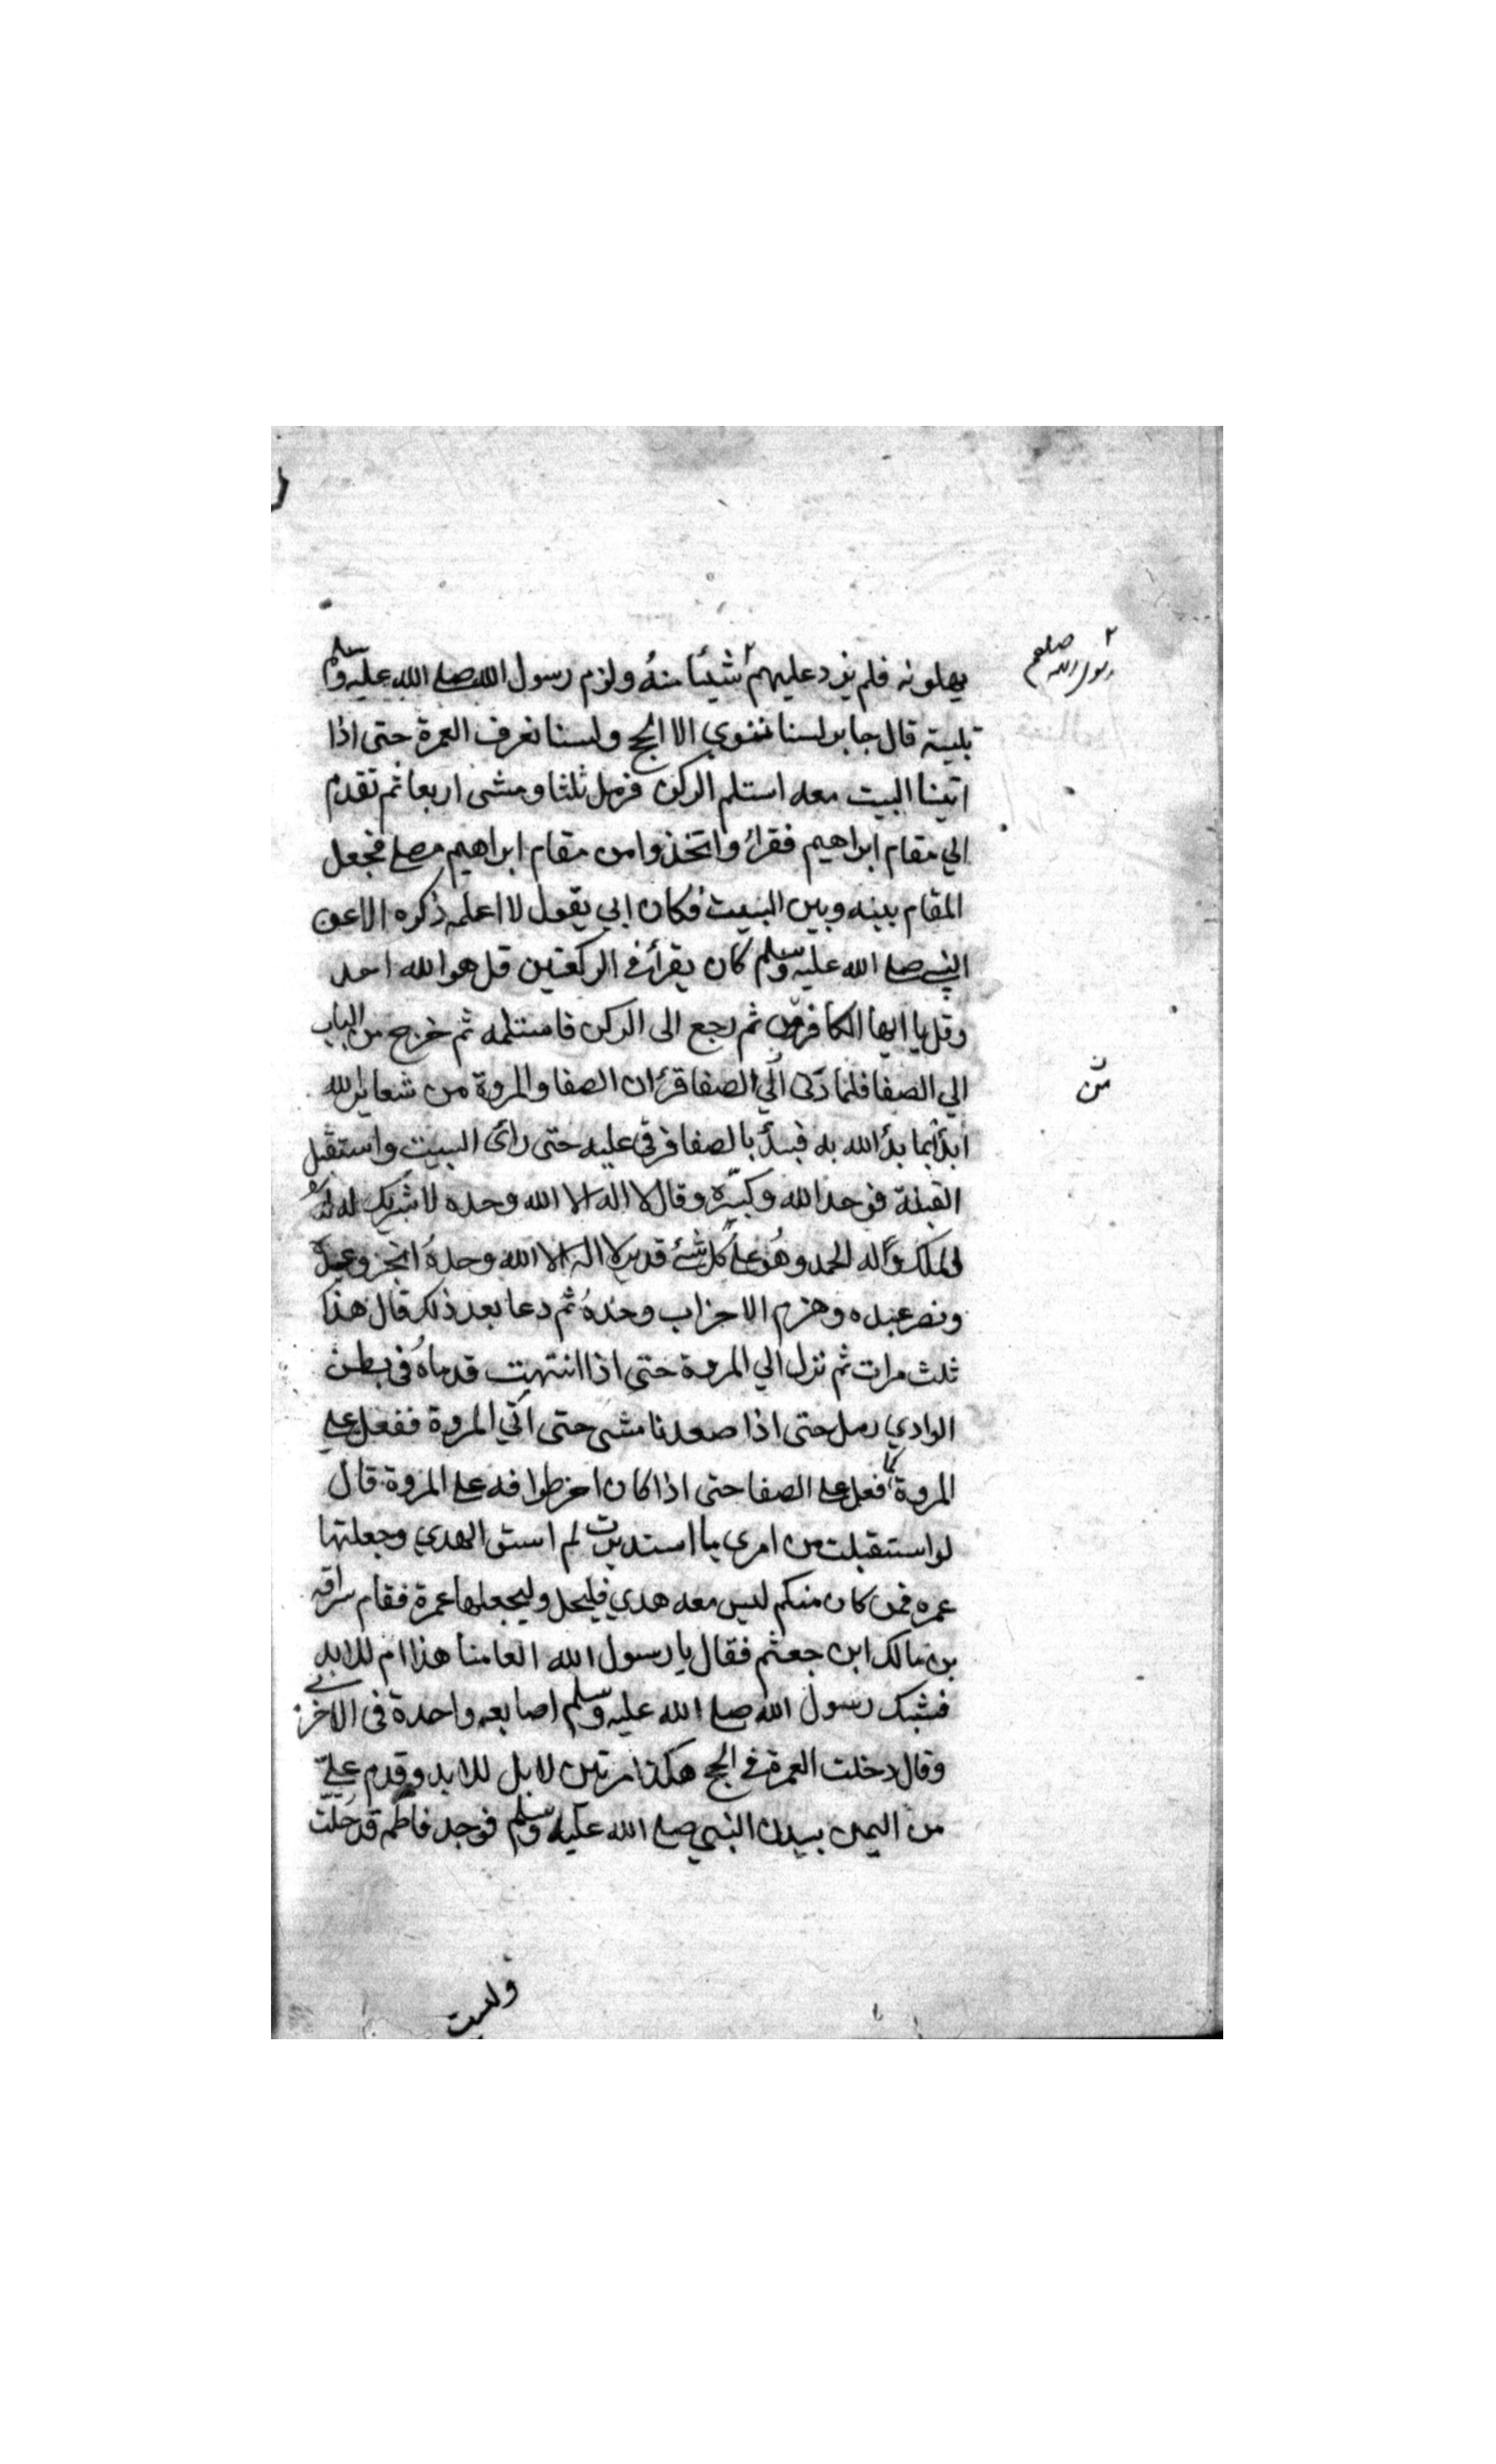 رسول الله صلعم
يهلونه فلم يزد عليهم شيئا منه ولزم رسول الله صلى الله عليه وسلم
تلبيته قال جابر لسنا ننوي الا الحج ولسنا نعرف العمرة حتى اذا
اتينا البيت معه استلم الركن فرمل ثلثا ومشى اربعا ثم تقدم
الي مقام ابراهيم فقرأ واتخذوا من مقام ابراهيم مصلى فجعل
المقام بينه وبين البيت فكان ابي يقول لا اعلمه ذكره الا عن
النبي صلى الله عليه وسلم كان يقرأ في الركعتين قل هو الله احد
وقل يا ايها الكافرون ثم رجع الى الركن فاستلمه ثم خرج من الباب
الي الصفا فلما دنى الي الصفا قرأ ان الصفا والمروة من شعاير الله
من
ابدأ بما بدأ الله به فبدأ بالصفا فرقي عليه حتى رأى البيت واستقبل
القبلة فوحد الله وكبره وقال لا اله الا الله وحده لا شريك له له
الملك وله الحمد وهو على كل شئ قدير لا اله الا الله وحده انجز وعده
ونصر عبده وهزم الاحزاب وحده ثم دعا بعد ذلك قال هذا
ثلث مرات ثم نزل الي المروة حتى اذا انتهت قدماه في بطن
الوادي رمل حتى اذا صعدنا مشى حتى اتي المروة ففعل على
المروة كما فعل على الصفا حتى اذا كان اخر طوافه على المروة قال
لو استقبلت من امري ما استدبرت لم اسق الهدي وجعلتها
عمره فمن كان منكم ليس معه هدي فليحل وليجعلها عمرة فقام سراقه
بن مالك ابن جعثم فقال يا رسول الله العامنا هذا ام للابد
فشبك رسول الله صلى الله عليه وسلم اصابعه واحدة في الاخرى
وقال دخلت العمرة في الحج هكذا مرتين لا بل للابد وقدم علي
من اليمن ببدن النبي صلى الله عليه وسلم فوجد فاطمه قد حلت
ولبست